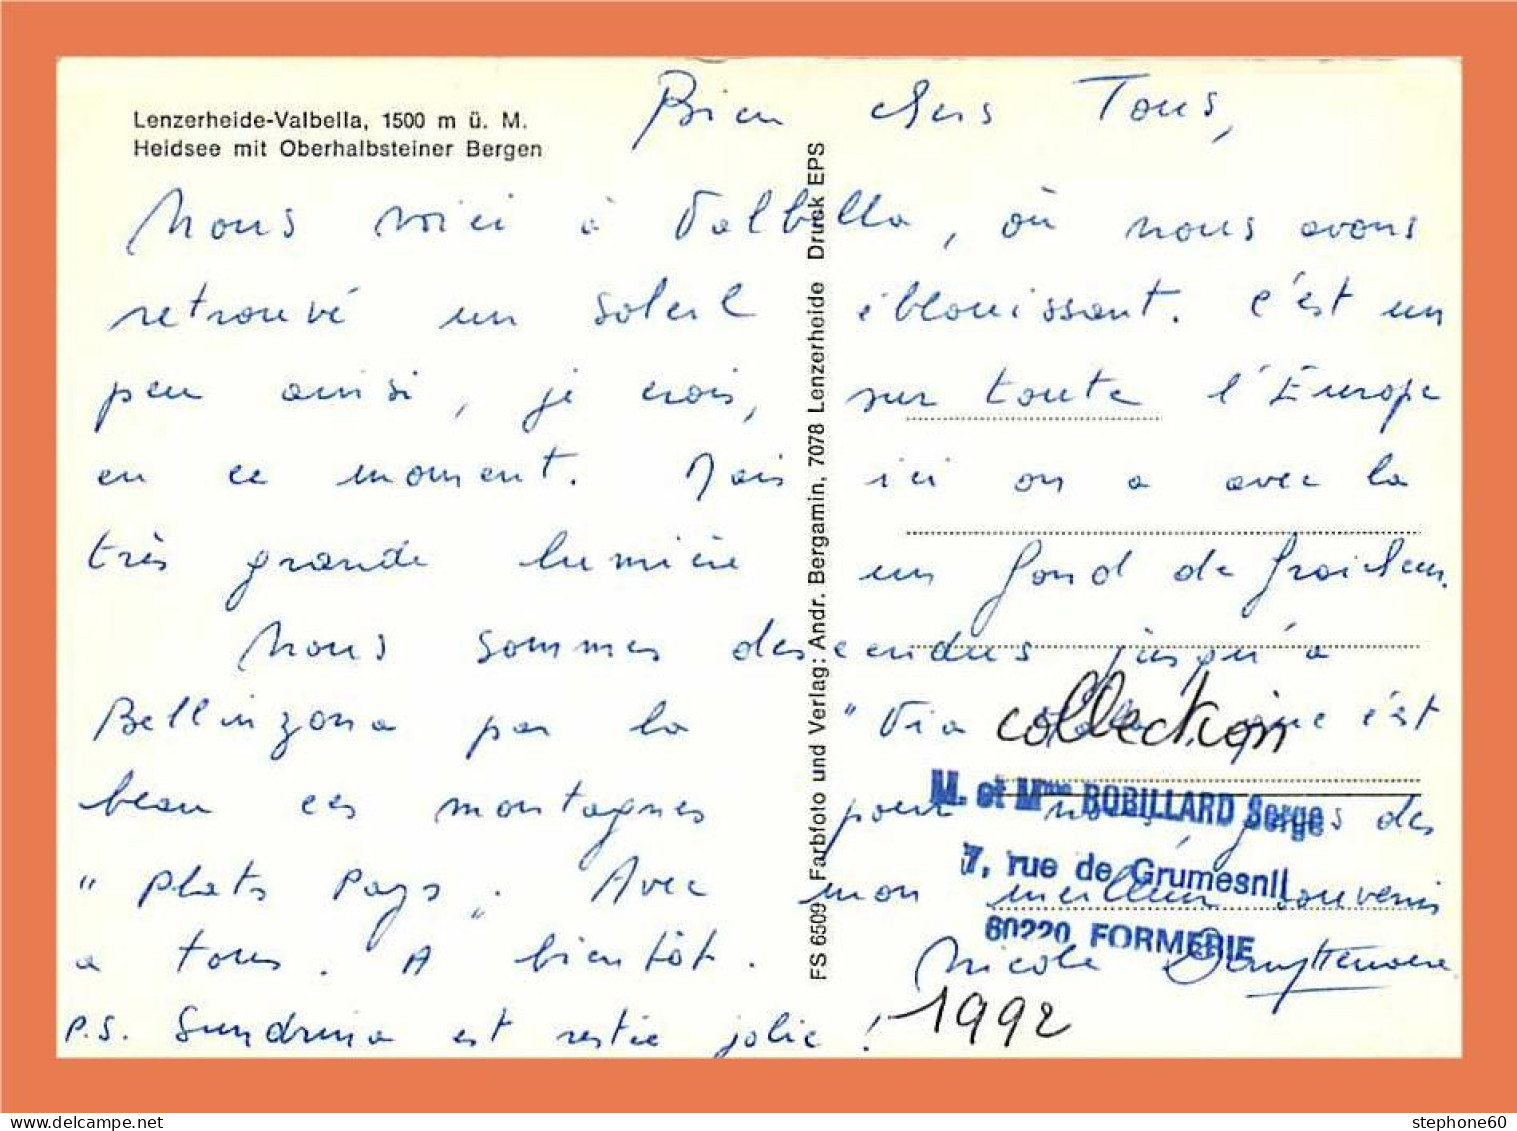 Lenzerheide-Valbella, 1500 m ü. M.
Heidsee mit Oberhalbsteiner Bergen
Bien chers Tous,
Nous voici à Valbella, où nous avons
retrouvé un soleil éblouissant. C'est un
peu ainsi, je crois, sur toute l'Europe
en ce moment. Mais ici on a avec la
très grande lumière un fond de fraîcheur.
Nous sommes descendus jusqu'à
Bellinzona par la "Via que c'est
beau ces montagnes pour nous, gens des
"plats pays". Avec mon meilleur souvenir
a tous. A bientôt. Nicole
P.S. Sundrina est restée jolie !
FS 6509 Farbfoto und Verlag: Andr. Bergamin, 7078 Lenzerheide Druck EPS
collection
M. et Mme BOBILLARD Serge
7, rue de Grumesnil
60220 FORMERIE
1992
stephone60